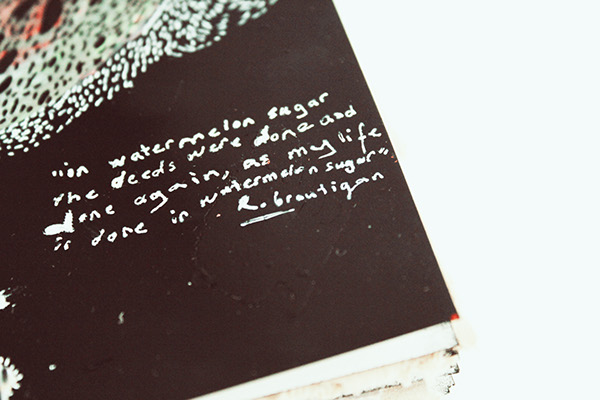 "in watermelon sugar
the deeds were done and
done again, as my life
is done in watermelon sugar"
R. brautigan